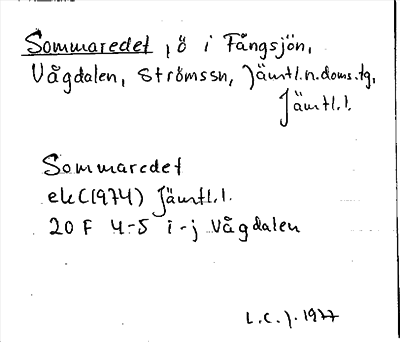 Sommaredet, ö i Fångsjön,
Vågdalen, Strömssn, Jämtl.n.doms.tg,
Jämtl.l.
Sommaredet
ekC(1974) Jämtl.l.
20 F 4-5 i-j Vågdalen
L.C.J. 1977